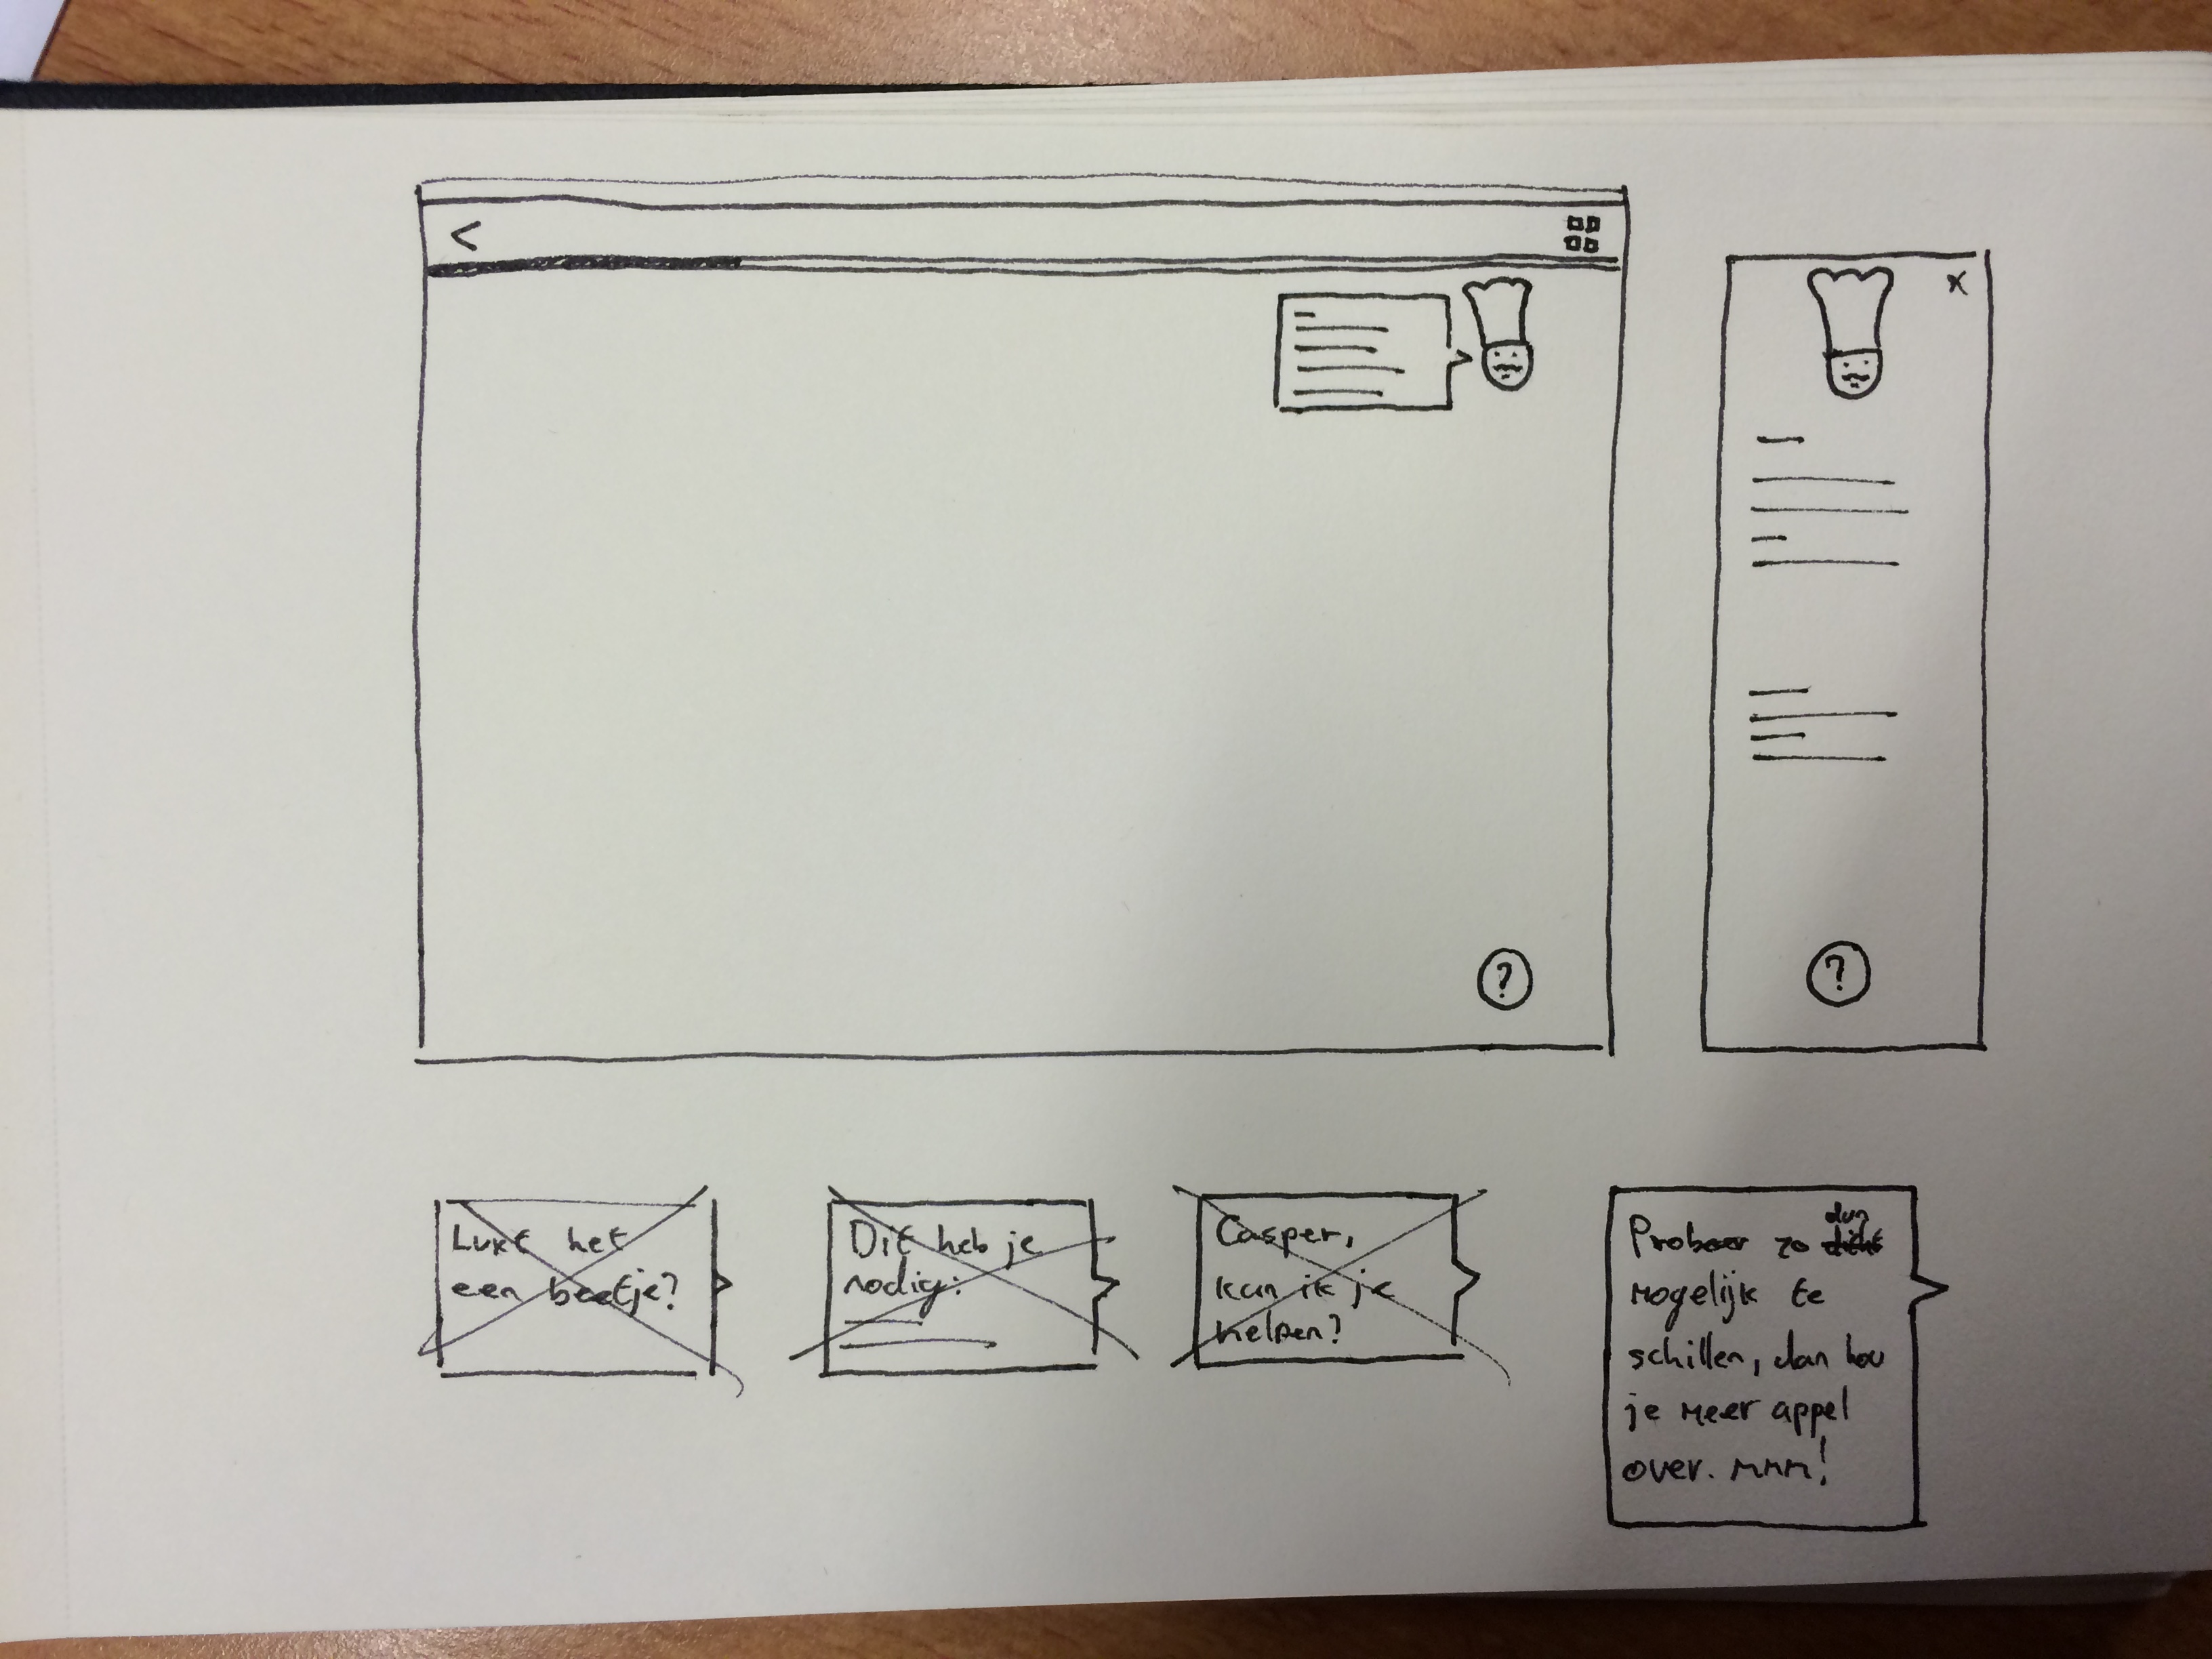 <
?
x
?
Lukt het
een beetje?
Dit heb je
nodig:
Casper,
kan ik je
helpen?
Probeer zo dun
mogelijk te
schillen, dan hou
je meer appel
over. mmm!